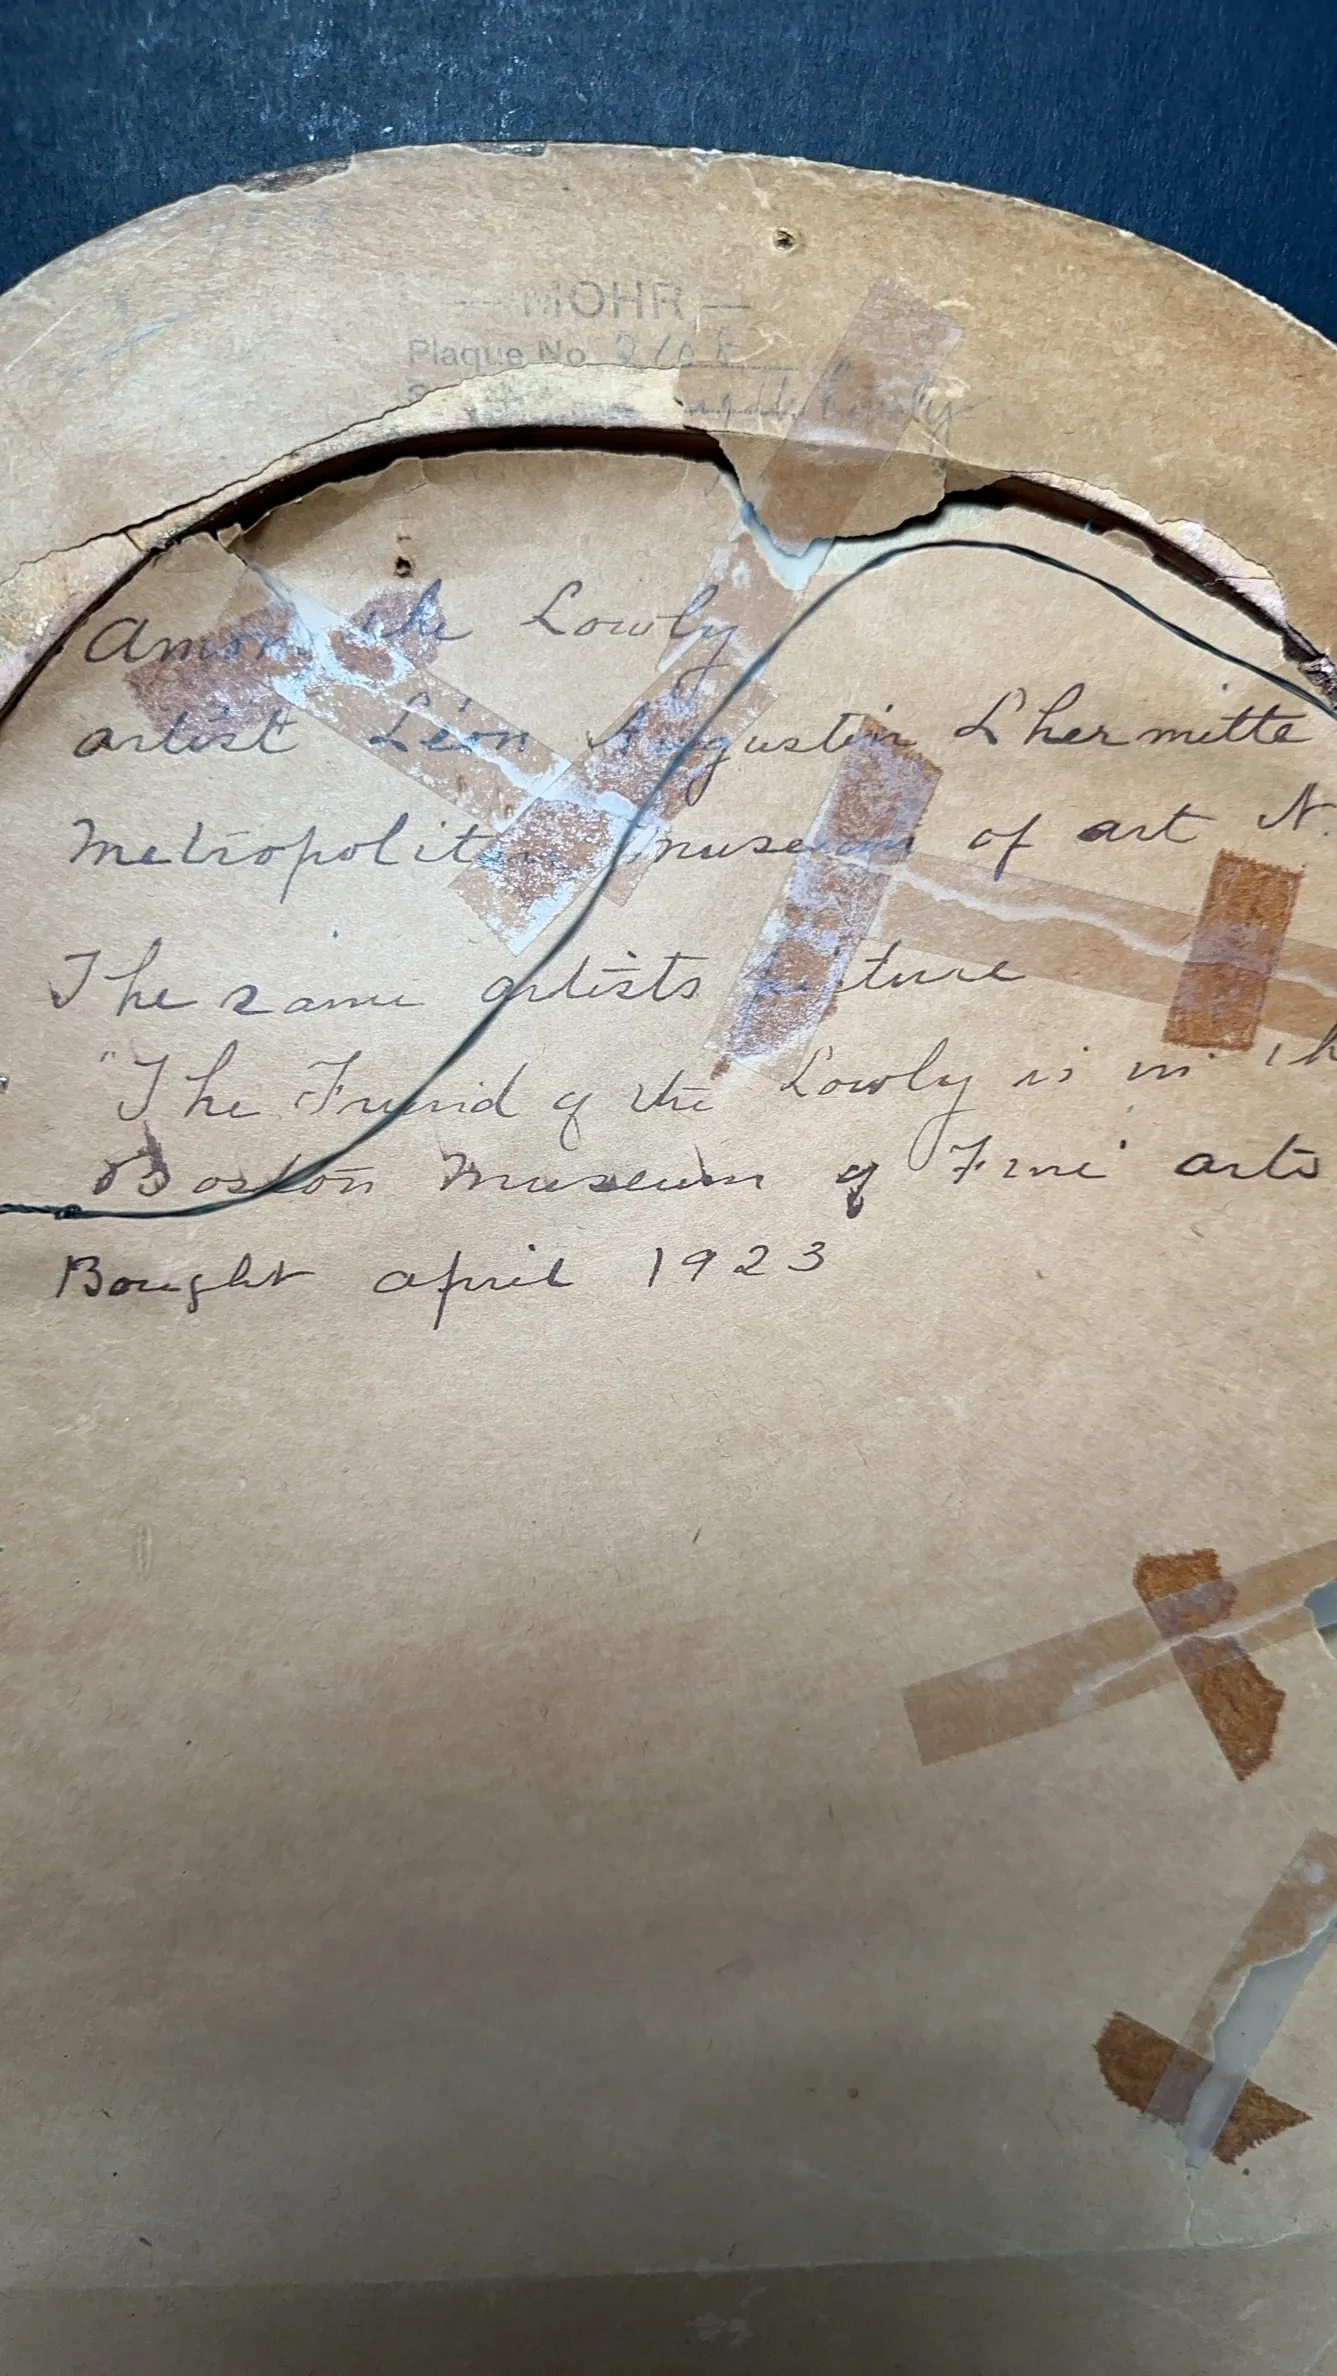 — MOHR —
Plaque No. 2108
Lowly
Among the Lowly
artist Léon Augustin Lhermitte
Metropolitan museum of art N.
The same artists picture
"The Friend of the Lowly is in th
Boston Museum of Fine arts
Bought april 1923